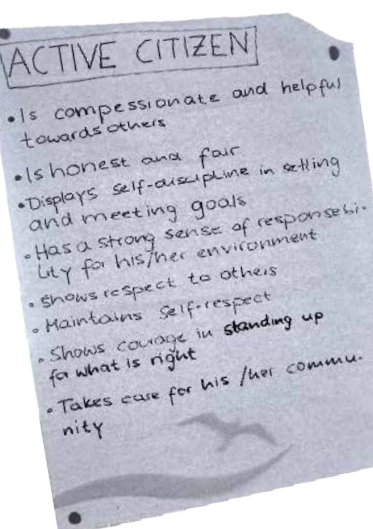 ACTIVE CITIZEN
• Is compessionate and helpful
towards others
• Is honest and fair
• Displays self-discipline in setting
and meeting goals
• Has a strong sense of responsebi-
lity for his/her environment
• Shows respect to others
• Maintains self-respect
• Shows courage in standing up
for what is right
• Takes care for his /her commu-
nity